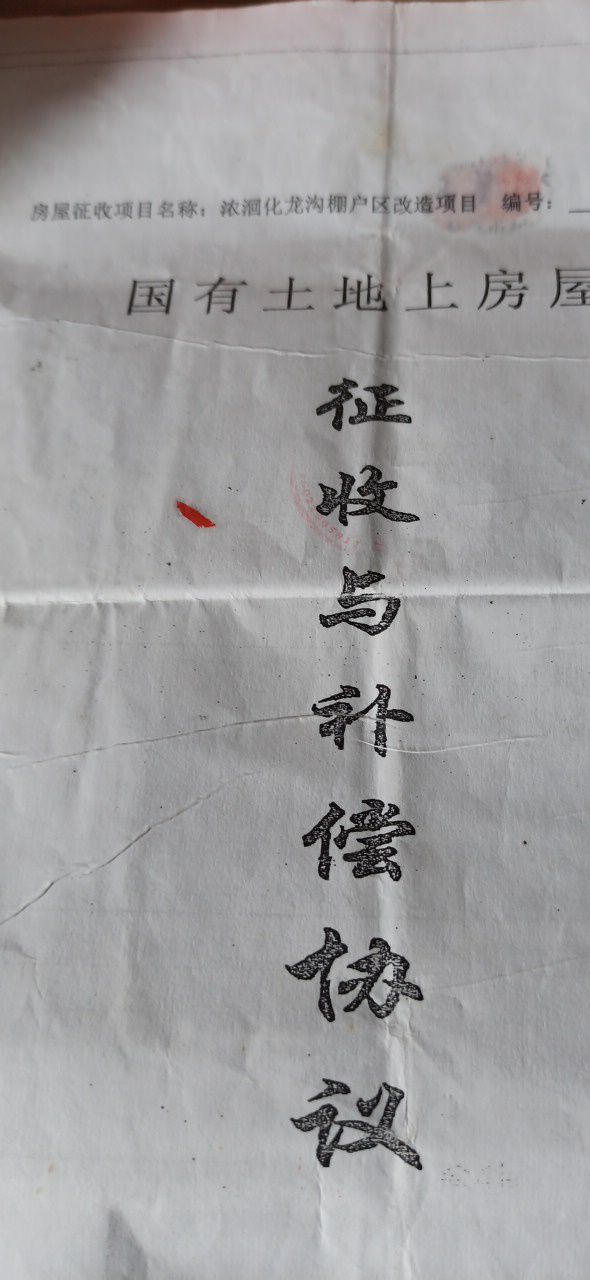 房屋征收项目名称：浓洄化龙沟棚户区改造项目 编号：
国有土地上房屋
征
收
与
补
偿
协
议